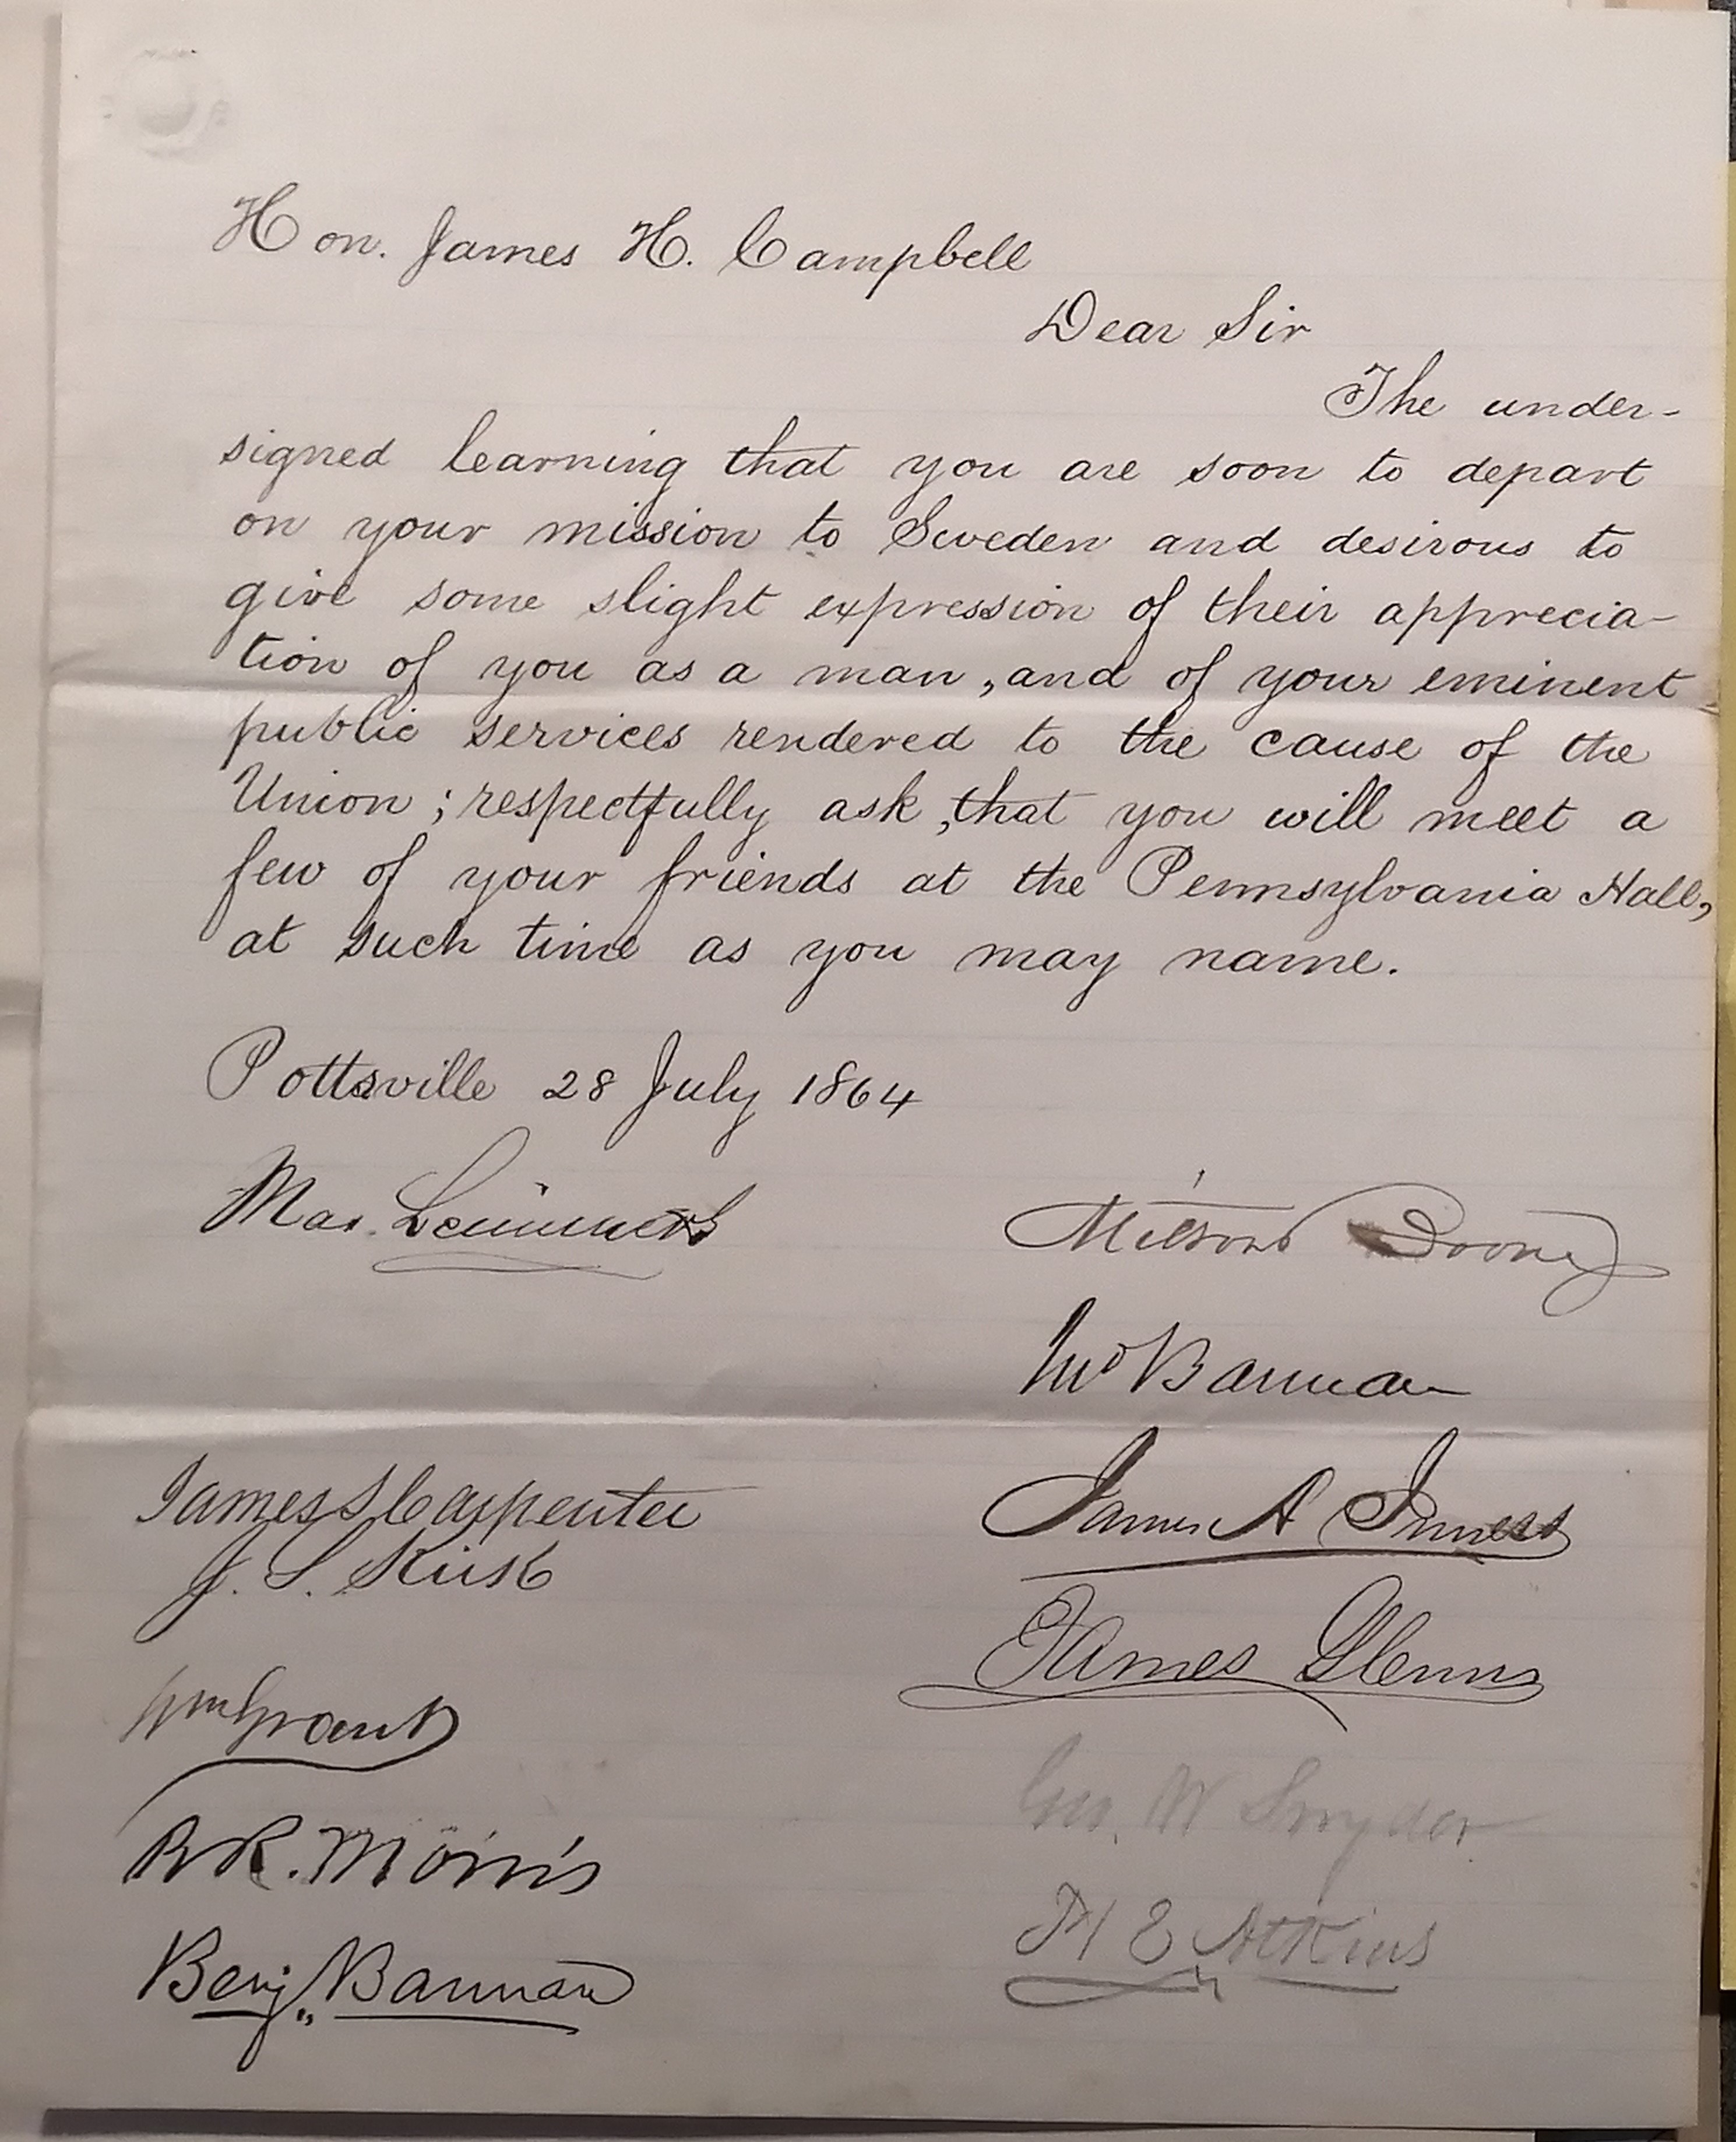 Hon. James H. Campbell
Dear Sir
The under-
signed learning that you are soon to depart
on your mission to Sweden and desirous to
give some slight expression of their apprecia-
tion of you as a man, and of your eminent
public services rendered to the cause of the
Union; respectfully ask, that you will meet a
few of your friends at the Pennsylvania Hall,
at such time as you may name.
Pottsville 28 July 1864
Milton
Wm Bannan
James S Carpenter
James A Inness
J. S.
James Glenn
Wm Grant
Geo. W Snyder
R R. Morris
H E Atkins
Benj. Bannan